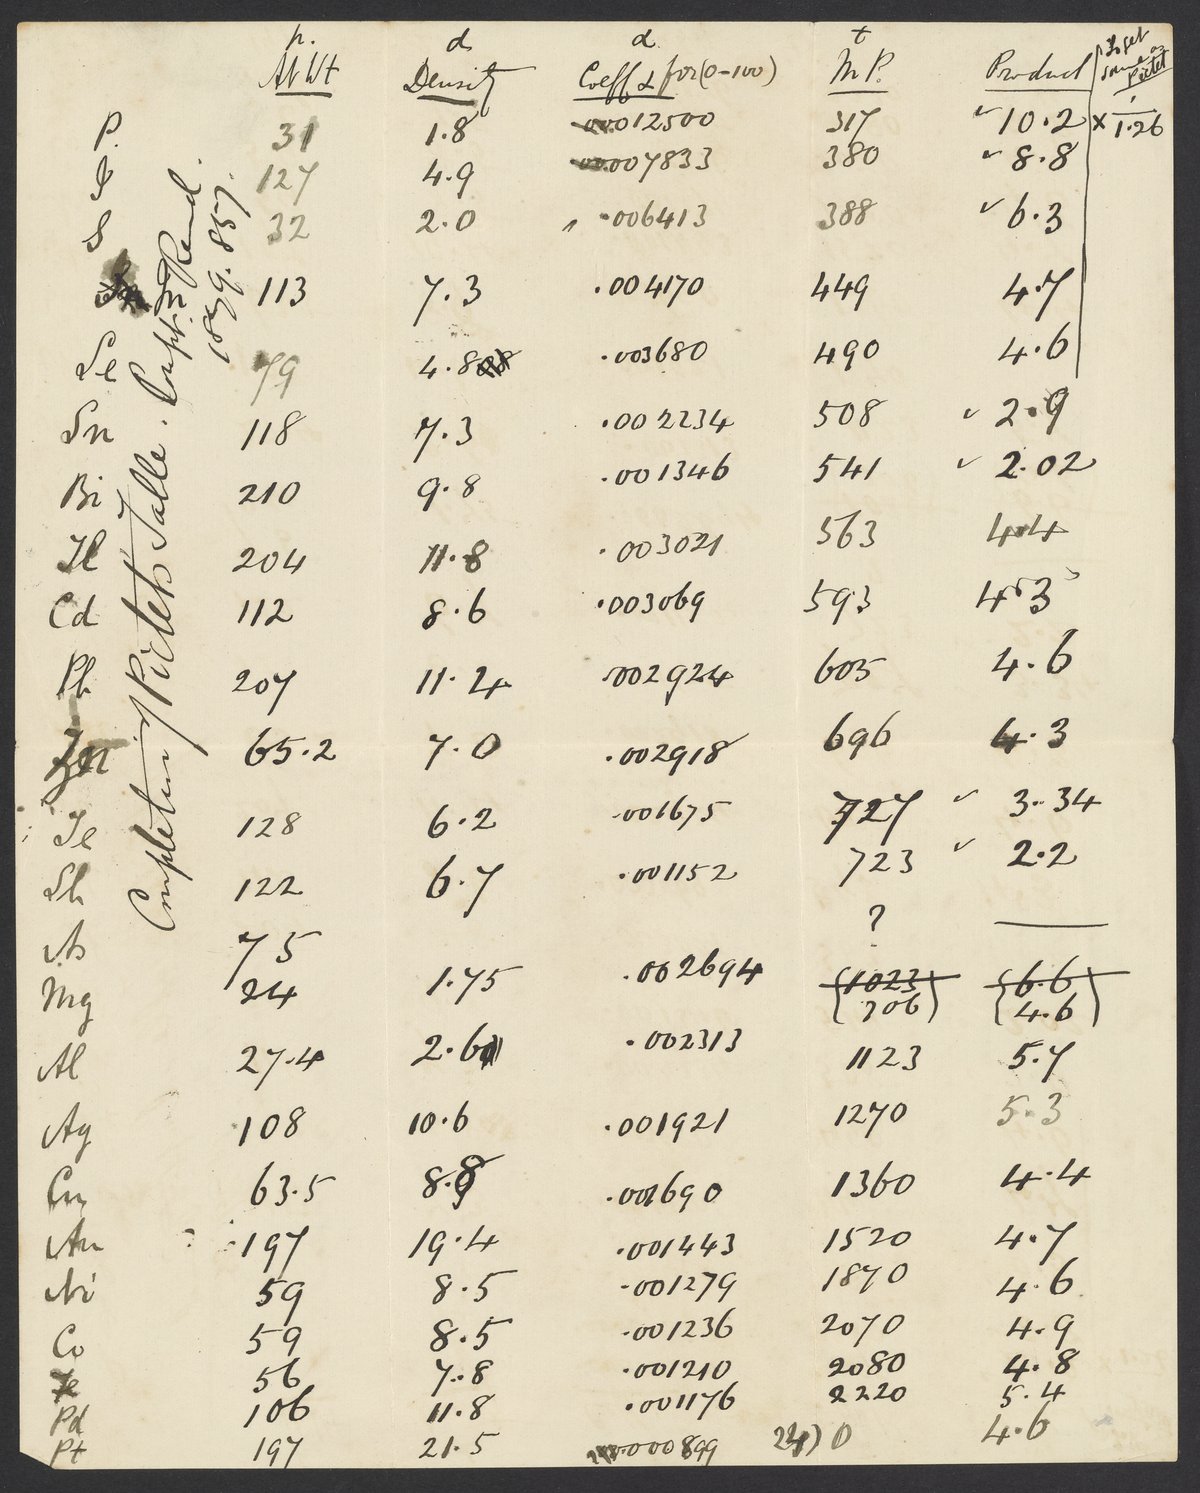 p. d α t
At Wt Density Coeff α for (0-100) M P. Product (To get same as Pictet
P. 31 1.8 .0012500 317 ✓ 10.2 × 1/1.26
I 127 4.9 .007833 380 ✓ 8.8
S 32 2.0 .006413 388 ✓ 6.3
In 113 7.3 .004170 449 4.7
Se 79 4.8 .003680 490 4.6
Sn 118 7.3 .002234 508 ✓ 2.9
Bi 210 9.8 .001346 541 ✓ 2.02
Tl 204 11.8 .003021 563 4.4
Cd 112 8.6 .003069 593 4.3
Pb 207 11.4 .002924 605 4.6
Zn 65.2 7.0 .002918 696 4.3
Te 128 6.2 .001675 727 ✓ 3.34
Sb 122 6.7 .001152 723 ✓ 2.2
As 75 ? —
Mg 24 1.75 .002694 (1023) (6.6)
(706) (4.6)
Al 27.4 2.6 .002313 1123 5.7
Ag 108 10.6 .001921 1270 5.3
Cu 63.5 8.8 .001690 1360 4.4
Au 197 19.4 .001443 1520 4.7
Ni 59 8.5 .001279 1870 4.6
Co 59 8.5 .001236 2070 4.9
Fe 56 7.8 .001210 2080 4.8
Pd 106 11.8 .001176 2220 5.4
Pt 197 21.5 .000899 2470 4.6
Completion of Pictet's Table. Compt. Rend.
1879. 857.